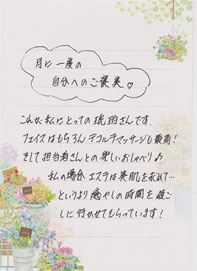 月に一度の
自分へのご褒美♡
これな私にとっての琥珀さんです。
フェイスはもちろんデコルテマッサージも最高!
そして担当者さんとの楽しいおしゃべり♪
私の場合エステは美肌を求めて…
というより癒やしの時間を過ごし
に行かせてもらっています!